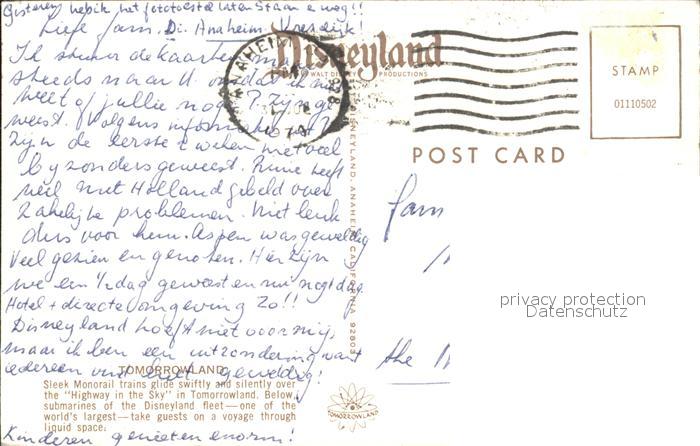 Gisteren heb ik het fototoestel laten staan e nog!!
Lieve fam. Di. Anaheim Vreselijk!
Ik stuur de kaarten maar
steeds naar U omdat ik niet
weet of jullie nog ? Zijn ge
weest. Volgens informatie
Zijn de eerste 2 weken niet veel
byzonders geweest. heeft
veel met Holland gebeld over
Zakelijke problemen. Niet leuk
dus voor hem. Aspen was geweldig
Veel gezien en genoten. Hier zijn
we een 1/2 dag geweest en nu nog 1 dag.
Hotel + directe omgeving Zo!!
Disneyland hoeft niet voor mij,
maar ik ben een uitzondering want
iedereen vind het geweldig!
Kinderen genieten enorm!
Disneyland
WALT DISNEY PRODUCTIONS
ANAHEIM
PM
STAMP
01110502
POST CARD
DISNEYLAND, ANAHEIM, CALIFORNIA 92803
fam
"
the
privacy protection
Datenschutz
TOMORROWLAND
Sleek Monorail trains glide swiftly and silently over
the "Highway in the Sky" in Tomorrowland. Below,
submarines of the Disneyland fleet—one of the
world's largest—take guests on a voyage through
liquid space.
TOMORROWLAND